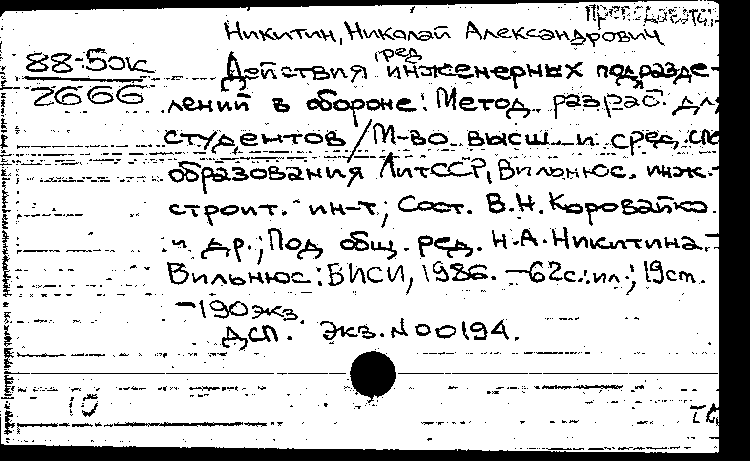 Никитин, Николай Александрович
ред
88-5ок
2666
Действия инженерных подразде-
лений в обороне: Метод. разраб. для
студентов / М-во высш. и сред. спе
образования ЛитССР, Вильнюс. инж.-
строит. ин-т; Сост. В.Н. Коровайко
и др.; Под общ. ред. Н.А. Никитина.-
Вильнюс: ВИСИ, 1986. -62с.: ил.; 19см.
-190экз.
ДСП. Экз.N00194.
10